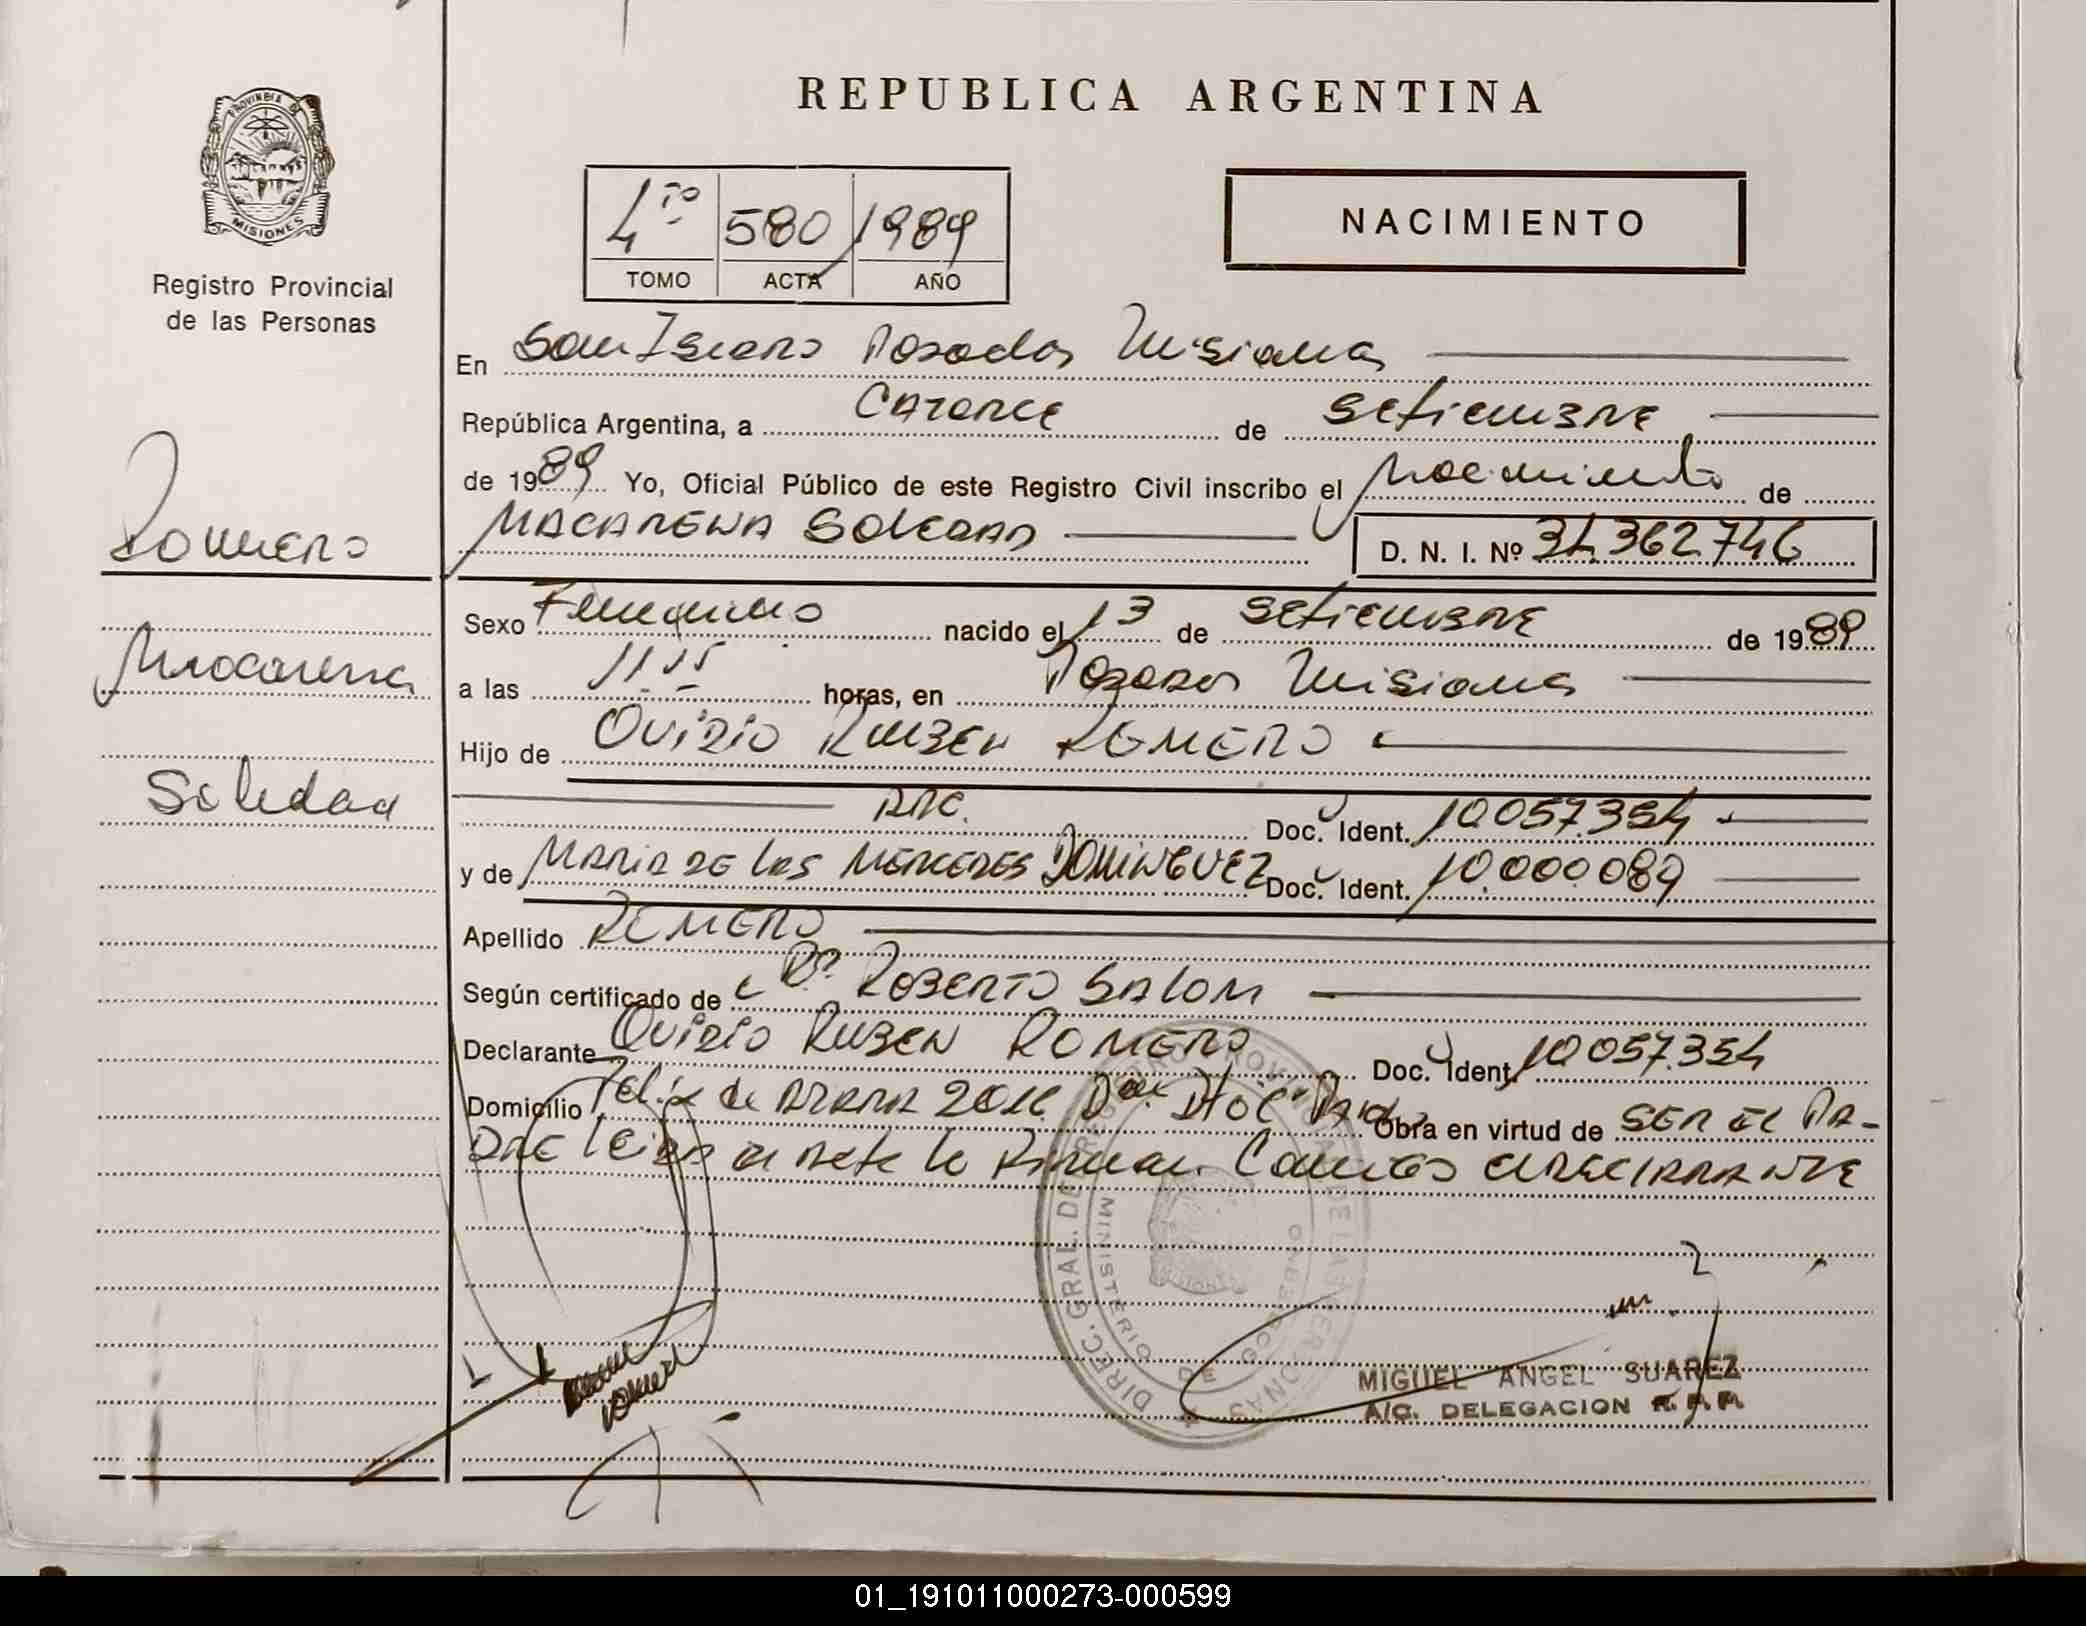 REPUBLICA ARGENTINA
PROVINCIA DE MISIONES
Registro Provincial
de las Personas
4to 580 1989
TOMO ACTA AÑO
NACIMIENTO
Romero
Macarena
Soledad
En San Isidro Posadas Misiones
República Argentina, a Catorce de Setiembre
de 1989 Yo, Oficial Público de este Registro Civil inscribo el Nacimiento de
MACARENA SOLEDAD D. N. I. Nº 34.362.746
Sexo Femenino nacido el 13 de Setiembre de 1989
a las 11.15 horas, en Posadas Misiones
Hijo de OVIDIO RUBEN ROMERO
ARG. Doc. Ident. 10.057.354
y de MARIA DE LAS MERCEDES DOMINGUEZ Doc. Ident. 10.000.089
Apellido ROMERO
Según certificado de Dr. ROBERTO SALOM
Declarante OVIDIO RUBEN ROMERO Doc. Ident. 10.057.354
Domicilio Felix de AZARA Obra en virtud de SER EL PA-
DRE leida el Acta la Firman Conmigo el DECLARANTE
DIREC. GRAL. DEL REGISTRO PROVINCIAL DE LAS PERSONAS
MINISTERIO DE GOBIERNO
MIGUEL ANGEL SUAREZ
A/C. DELEGACION R.P.P.
01_191011000273-000599